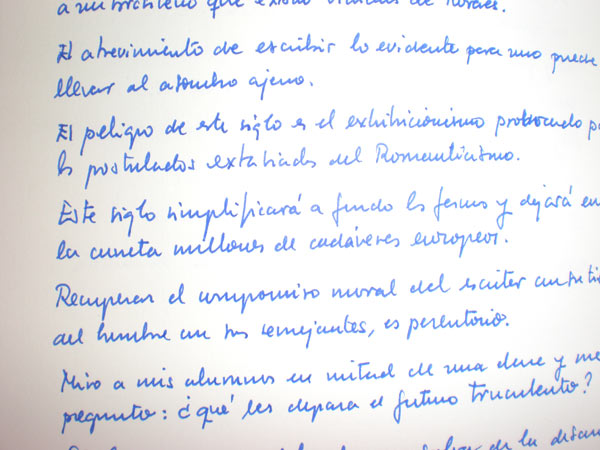 que
El atrevimiento de escribir lo evidente para uno puede
llevar al asombro ajeno.
El peligro de este siglo es el exhibicionismo provocado
los postulados del Romanticismo.
Este siglo simplificará a fondo las formas y dejará en
la cuneta millones de cadáveres europeos.
Recuperar el compromiso moral del
del hombre con sus semejantes, es perentorio.
Miro a mis alumnos en mitad de una clase y me
pregunto: ¿qué les depara el futuro truculento?
de la